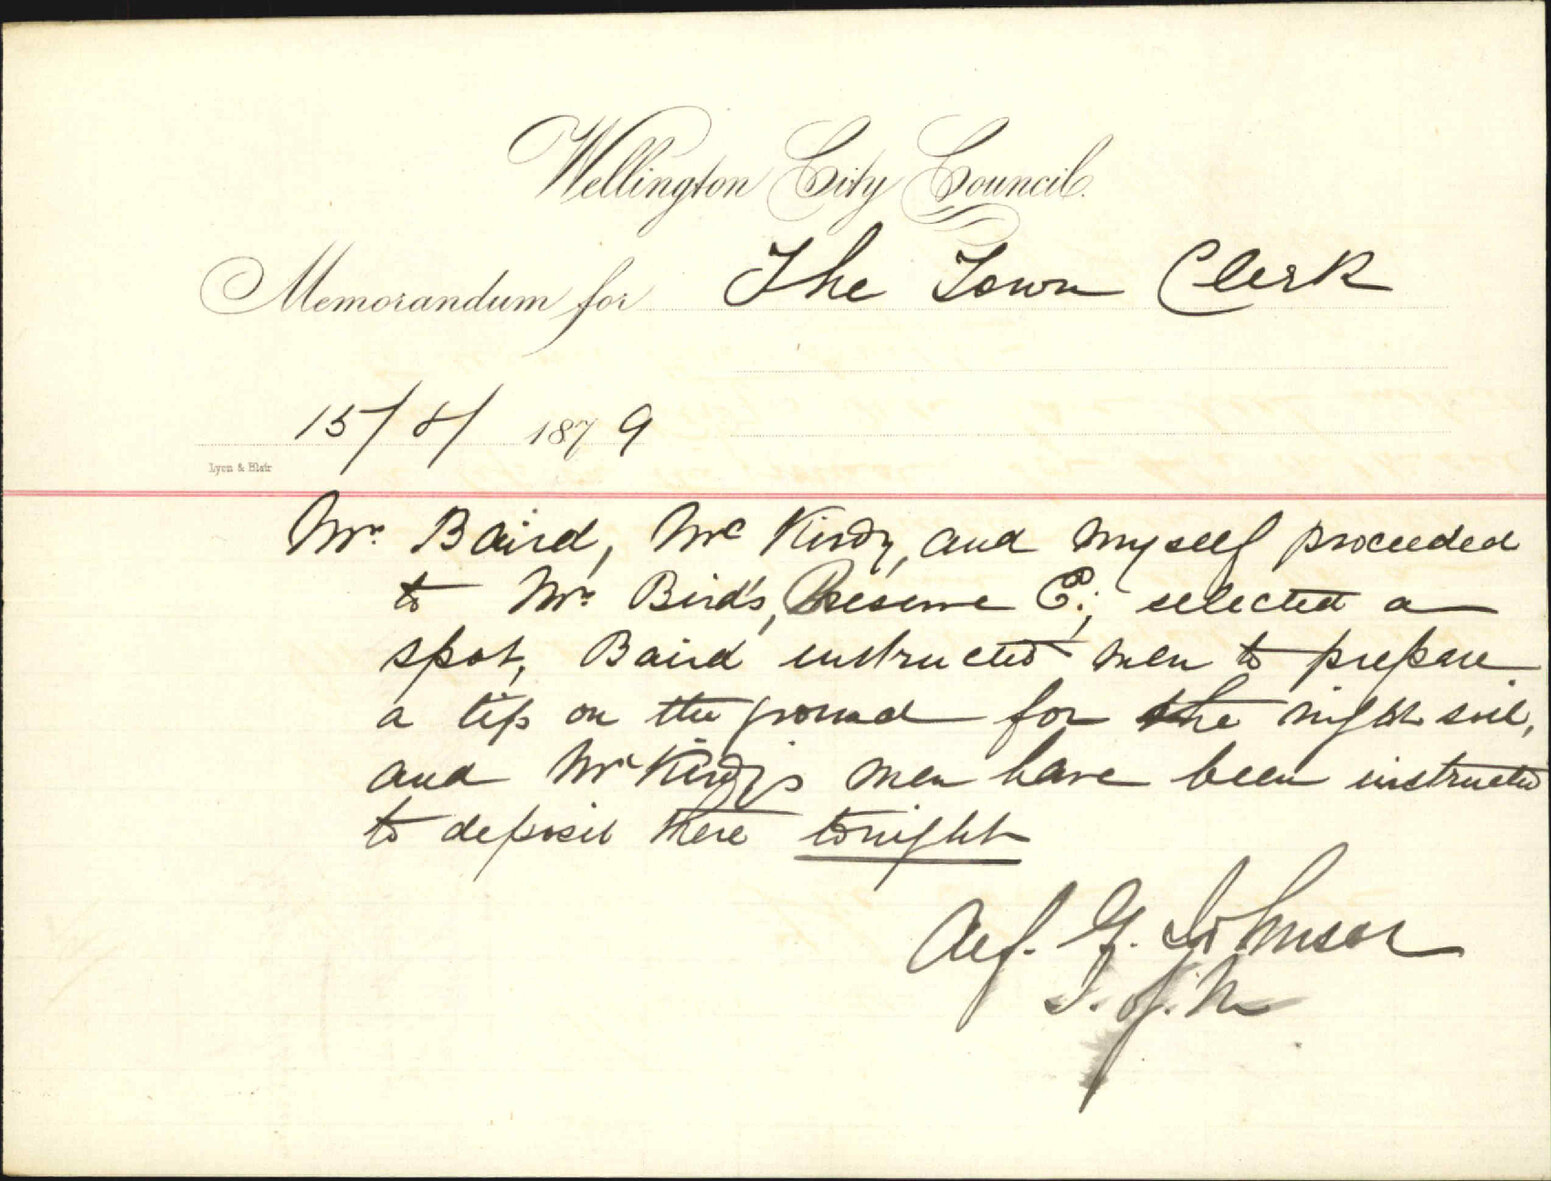 Wellington City Council.
Memorandum for The Town Clerk
15/8/ 1879
Lyon & Blair
Mr. Baird, Mc Kirdy, and myself proceeded
to Mrs Bird's, Reserve E; selected a
spot, Baird instructed men to prepare
a tip on the ground for the night soil,
and McKirdy's men have been instructed
to deposit there tonight
Alf. G. Johnson
I. of N